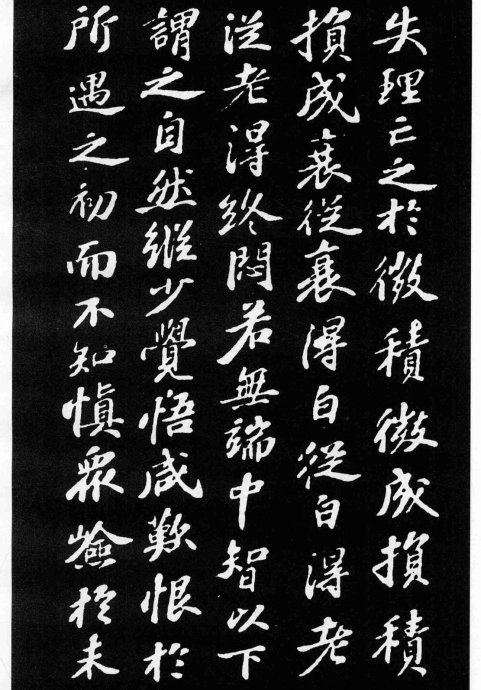 失理亡之於微積微成損積
損成衰從衰得白從白得老
從老得終悶若無端中智以下
謂之自然縱少覺悟咸歎恨於
所遇之初而不知慎衆險於未